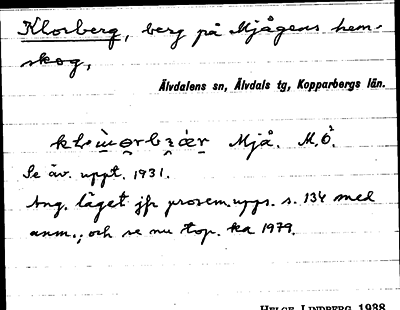 Klosberg, berg på Mjågens hem-
skog,
Älvdalens sn, Älvdals tg, Kopparbergs län.
Mjå. M.Ö.
Se äv. uppt. 1931.
Ang. läget jfr prosem.upps. s. 134 med
anm.; och se nu top. ka 1979.
HELGE LINDBERG 1988